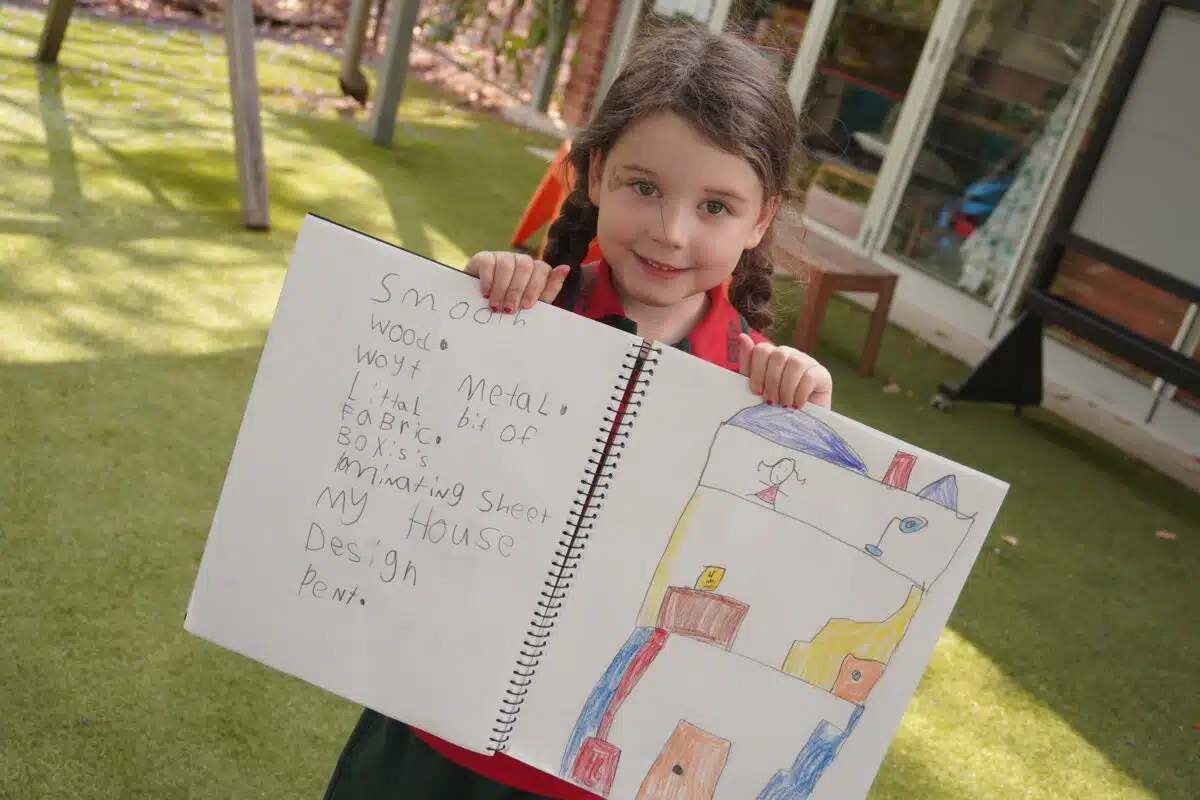 Smooth
wood.
wayt Metal.
Littal bit of
FaBric.
Boxis's
laminating Sheet
My House
Design
Pent.